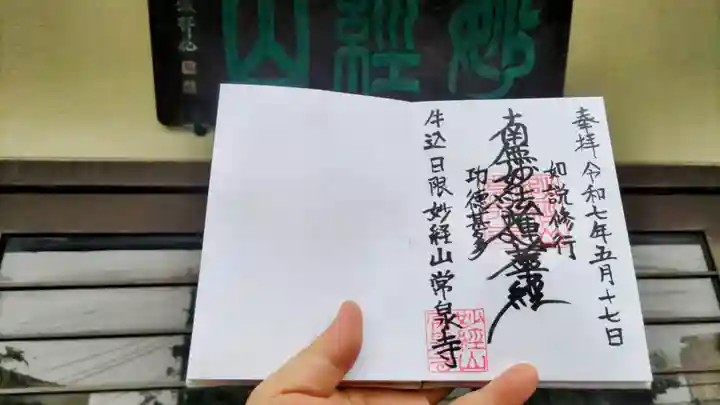 妙経山
奉拝 令和七年五月十七日
如説修行
南無妙法蓮華経
功徳甚多
牛込 日限 妙経山 常泉寺
妙経山